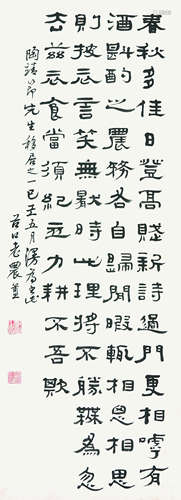 春秋多佳日登高賦新詩過門更相嘑有
酒斟酌之農務各自歸閒暇輒相思相思
則披衣言笑無猒時此理將不勝無為忽
去茲衣食當須紀力耕不吾欺
陶靖節先生移居之一 五月
老農